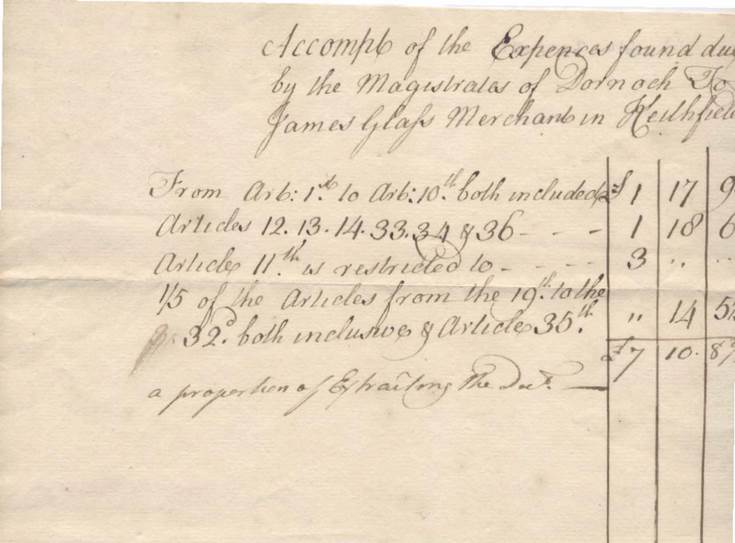 Accompt of the Expences found due
by the Magistrates of Dornoch To
James Glass Merchant in Keithfield
From Art: 1st to Art: 10th both included £ 1 17 9
Articles 12. 13. 14. 33. 34 & 36 - - - 1 18 6
Article 11th is restricted to - - - - 3 " "
1/5 of the Articles from the 19th to the
32d both inclusive & Article 35th " 14 5½
£7 10. 8
a proportion of Extracting the Dect. —